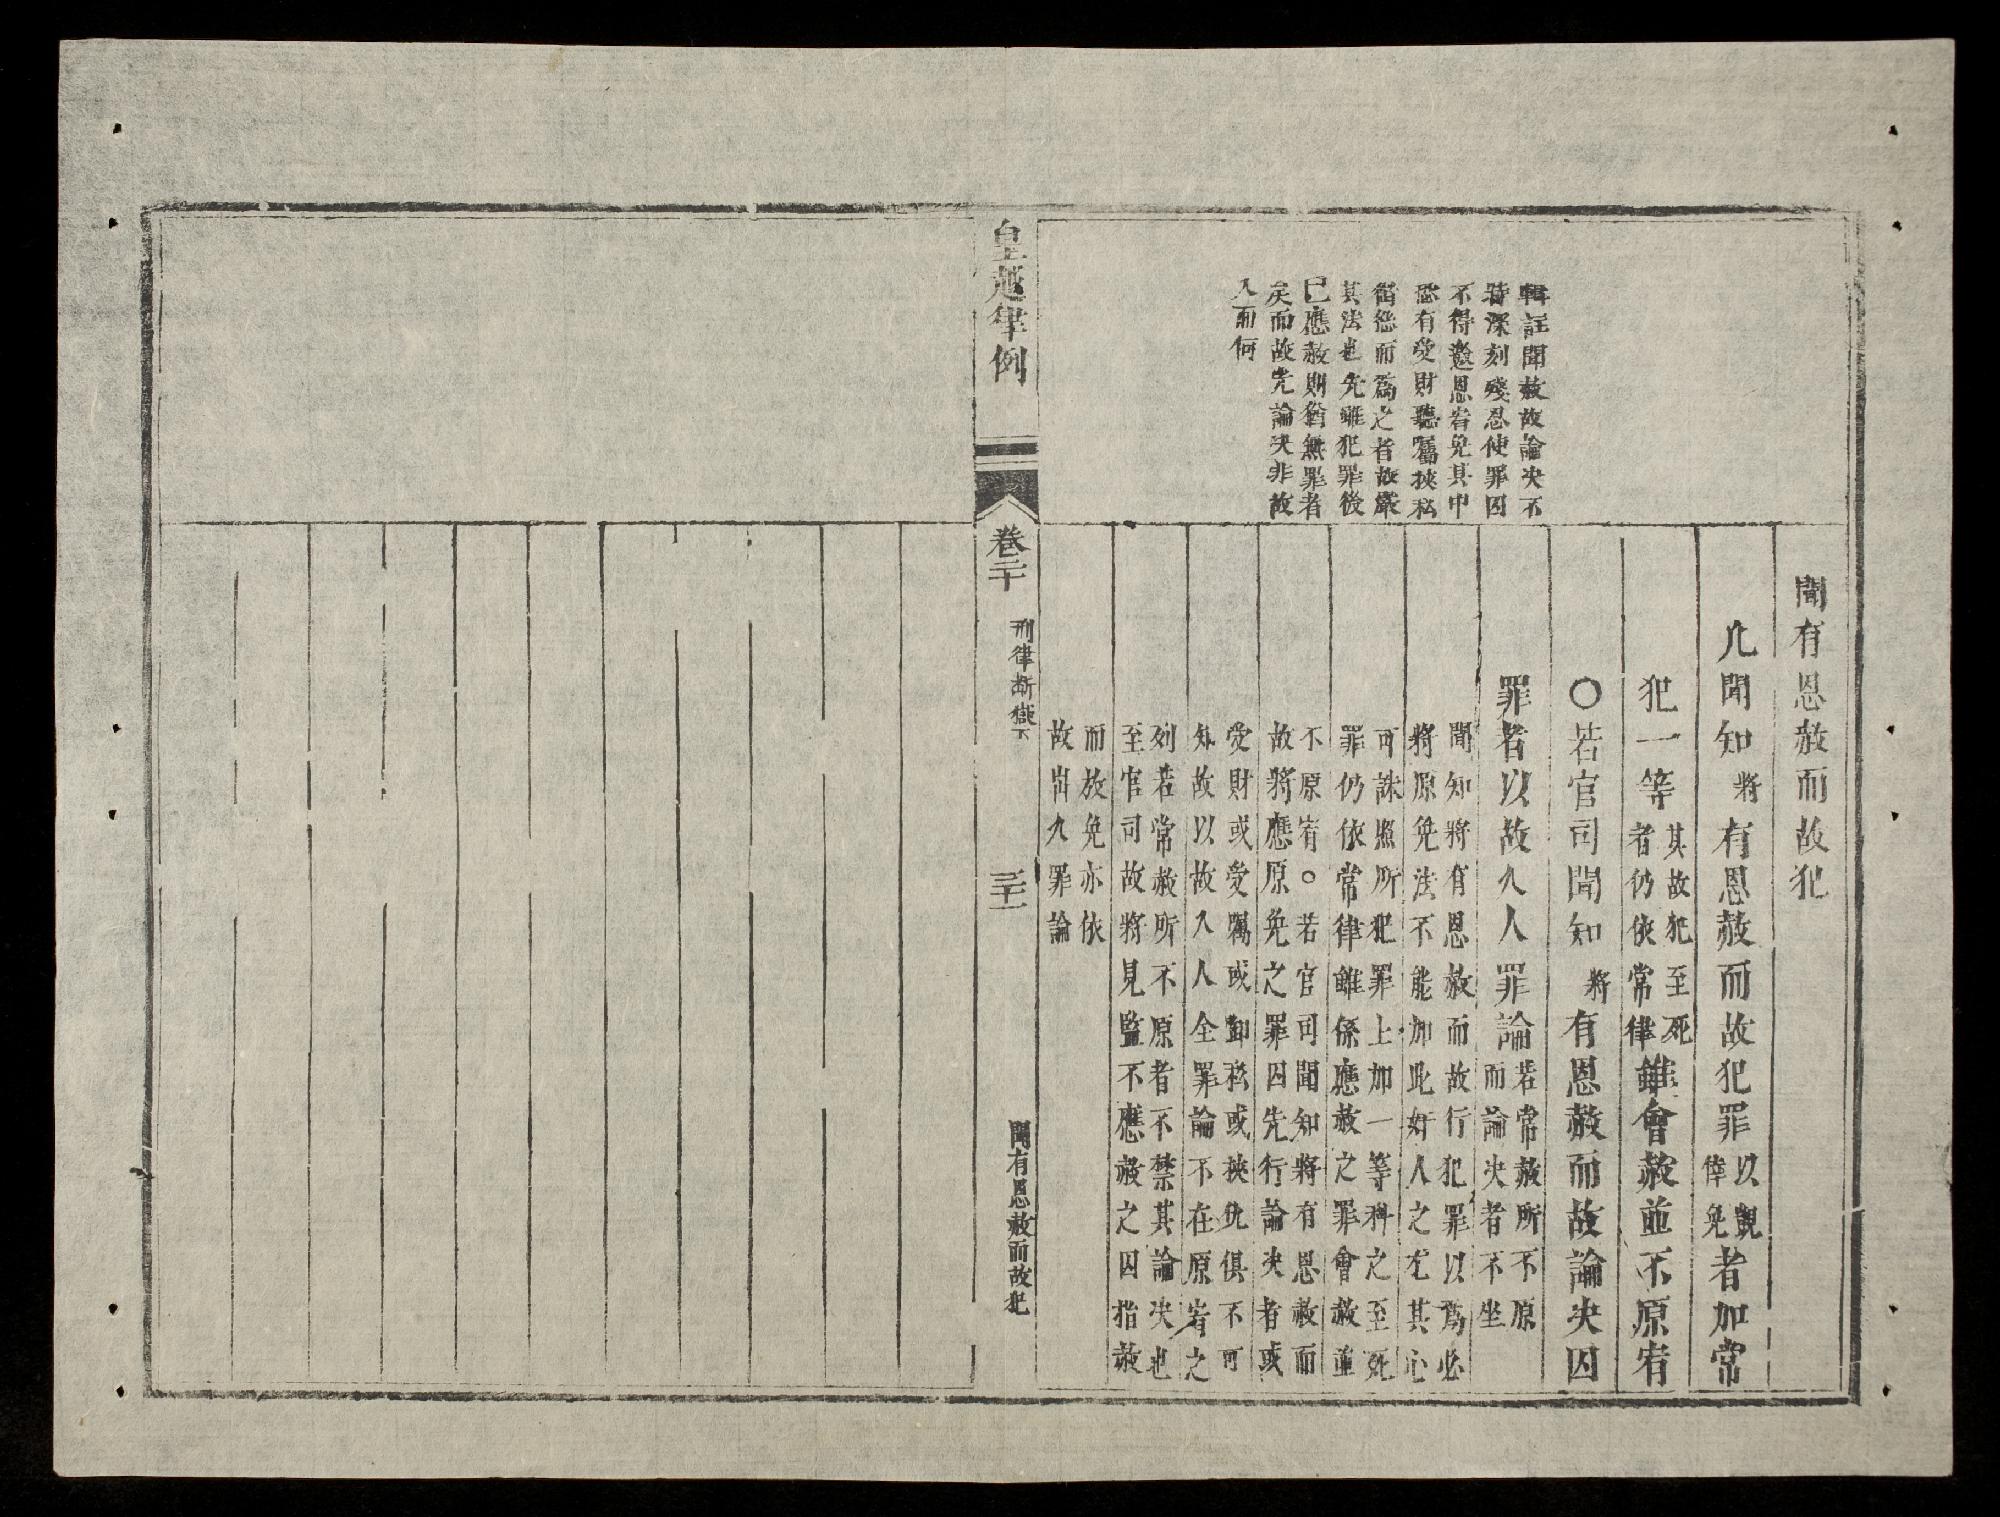 輯註聞赦故論决不
特深刻殘忍使罪囚
不得邀恩宥免其中
恐有受財聽囑挾私
徇慾而爲之者故嚴
其法也先雖犯罪後
已應赦則猶無罪者
矣而故先論决非故
入而何
聞有恩赦而故犯
凡聞知將有恩赦而故犯罪以覬倖免者加常
犯一等其故犯至死者仍依常律雖會赦並不原宥
○若官司聞知將有恩赦而故論决囚
罪者以故入人罪論若常赦所不原而論决者不坐
聞知將有恩赦而故行犯罪以爲必
將原免法不能加此奸人之尤其心
可誅照所犯罪上加一等科之至死
罪仍依常律雖係應赦之罪會赦並
不原宥。若官司聞知將有恩赦而
故將應原免之罪囚先行論决者或
受財或受囑或卸私或挾仇俱不可
知故以故入人全罪論不在原宥之
列若常赦所不原者不禁其論决也
至官司故將見監不應赦之囚指赦
而放免亦依
故出入罪論
皇越律例
卷二十
刑律斷獄下
三十一
聞有恩赦而故犯